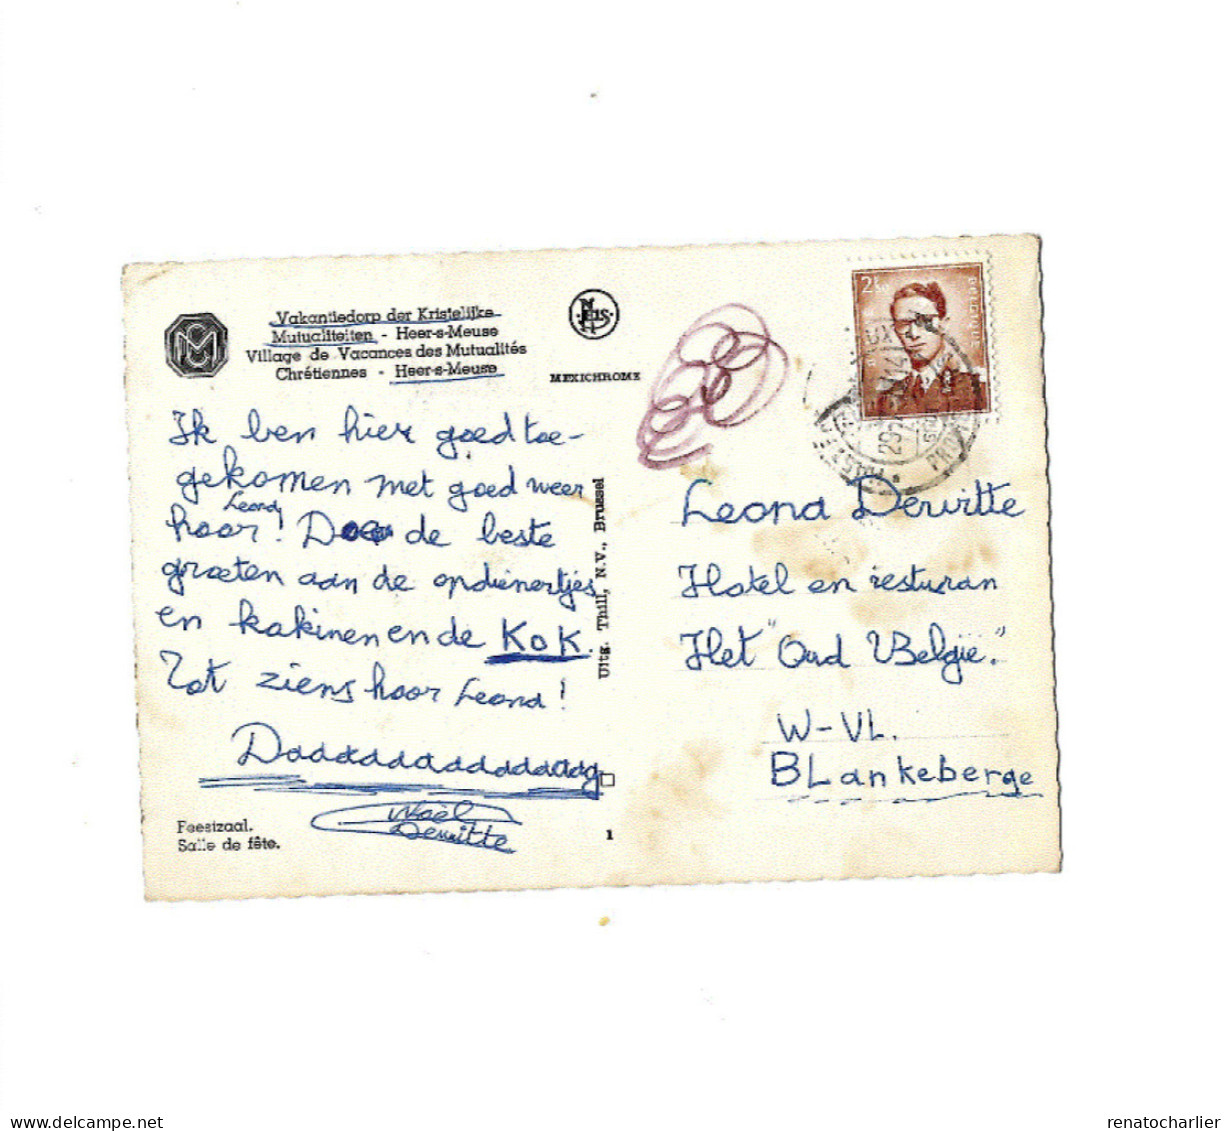 Vakantiedorp der Kristelijke
Mutualiteiten - Heer-s-Meuse
Village de Vacances des Mutualités
Chrétiennes - Heer-s-Meuse
MEXICHROME
Ik ben hier goed toe-
gekomen met goed weer
Leona
hoor! de beste
groeten aan de opdienertjes
en kakinen en de KoK.
Tot ziens hoor Leona!
Daaaaaaaaaaaaaag
Noël
Dewitte
Feestzaal.
Salle de fête.
1
Uitg. Thill, N.V., Brussel
2F50
BELGIQUE
Leona Dewitte
Hotel en resturan
Het "Oud Belgie."
W-VL.
BLankeberge
renatocharlier